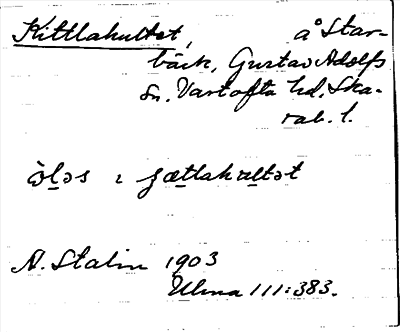 Kittlahultet, å Star-
bäck, Gustav Adolfs
sn. Vartofta hd, Ska-
rab. l.
òl̲əs ɿ ʂætlahultət
A. Stalin 1903
Ulma 111:383.